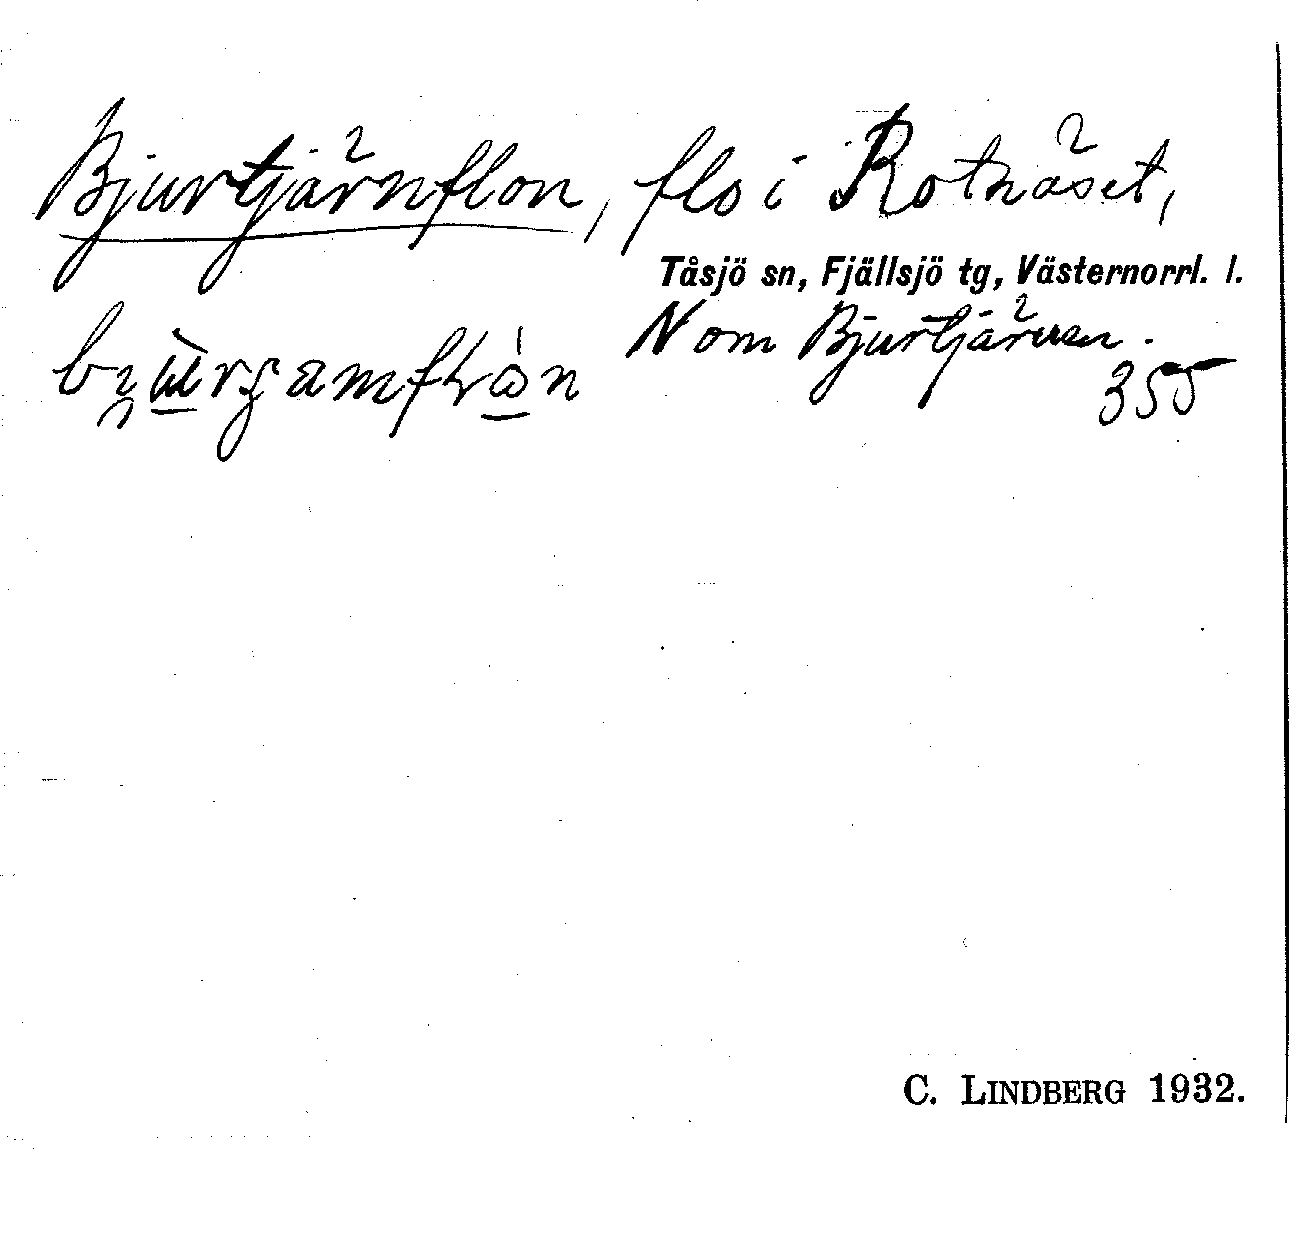 Bjurtjärnflon, flo i Rotnäset,
Tåsjö sn, Fjällsjö tg, Västernorrl. l.
N om Bjurtjärnen.
355
C. LINDBERG 1932.